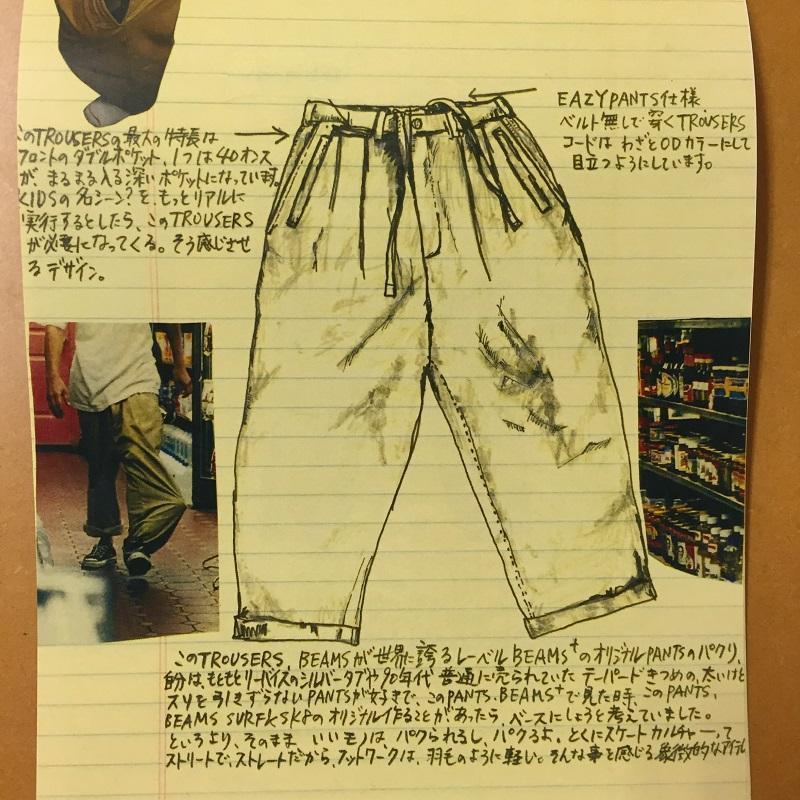 このTROUSERSの最大の特長は
フロントのダブルポケット、1つは40オンス
が、まるまる入る深いポケットになっています。
KIDSの名シーン?を、もっとリアルに
実行するとしたら、このTROUSERS
が必要になってくる。そう感じさせ
るデザイン。
EAZYPANTS仕様、
ベルト無しで穿くTROUSERS
コードはわざとODカラーにして
目立つようにしています。
このTROUSERS、BEAMSが世界に誇るレーベルBEAMS+のオリジナルPANTSのパクリ、
自分は、もともとリーバイスのシルバータブや90年代普通に売られていたテーパードきつめの、太いけど
スソを引きずらないPANTSが好きで、このPANTS、BEAMS+で見た時、このPANTS、
BEAMS SURF&SK8のオリジナル作ることがあったら、ベースにしようと考えていました。
というより、そのまま、いいモノは、パクられるし、パクるよ。とくにスケートカルチャーって
ストリートで、ストレートだから、フットワークは、羽毛のように軽い。そんな事を感じる象徴的なアイテム